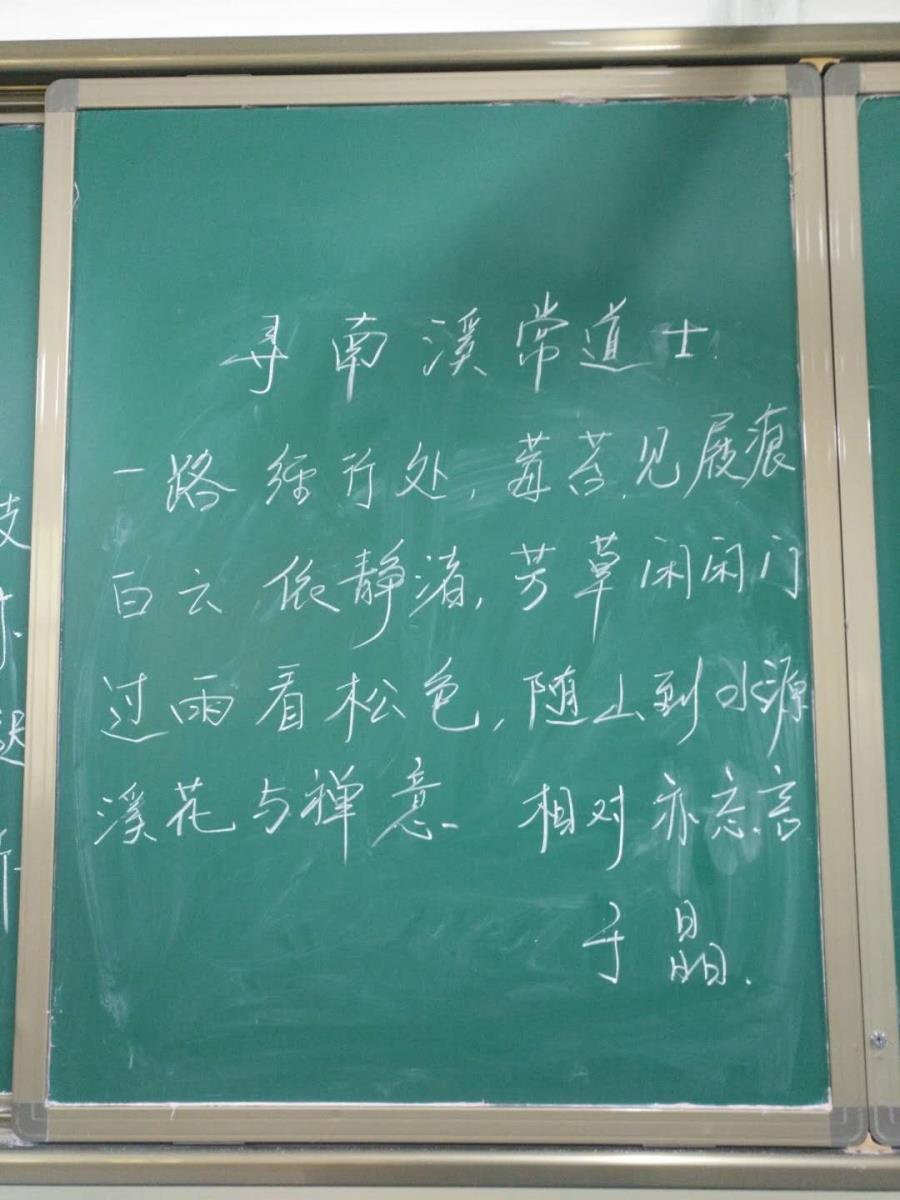 寻南溪常道士
一路经行处,莓苔见屐痕
白云依静渚,芳草闲闲门
过雨看松色,随山到水源
溪花与禅意 相对亦忘言
于晶.